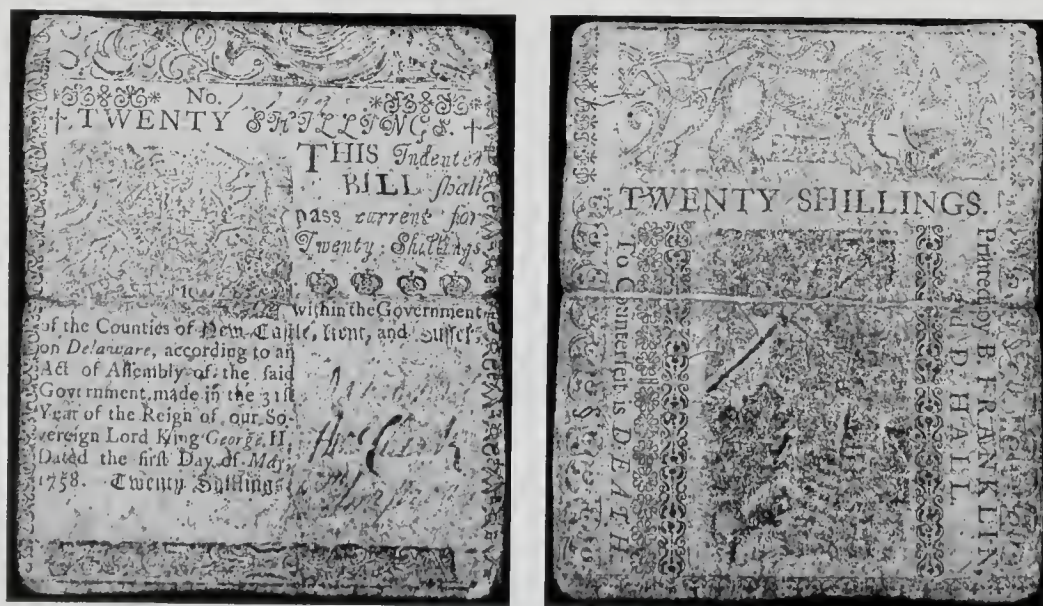 No.
TWENTY SHILLINGS.
THIS Indented
BILL ſhall
paſs current for
Twenty Shillings
within the Government
of the Counties of New-Caſtle, Kent, and Suſſex,
on Delaware, according to an
Act of Aſſembly of the ſaid
Government, made in the 31ſt
Year of the Reign of our So-
vereign Lord King George II.
Dated the firſt Day of May,
1758. Twenty Shillings
TWENTY SHILLINGS.
To Counterfeit is DEATH
Printed by B. FRANKLIN,
and D. HALL